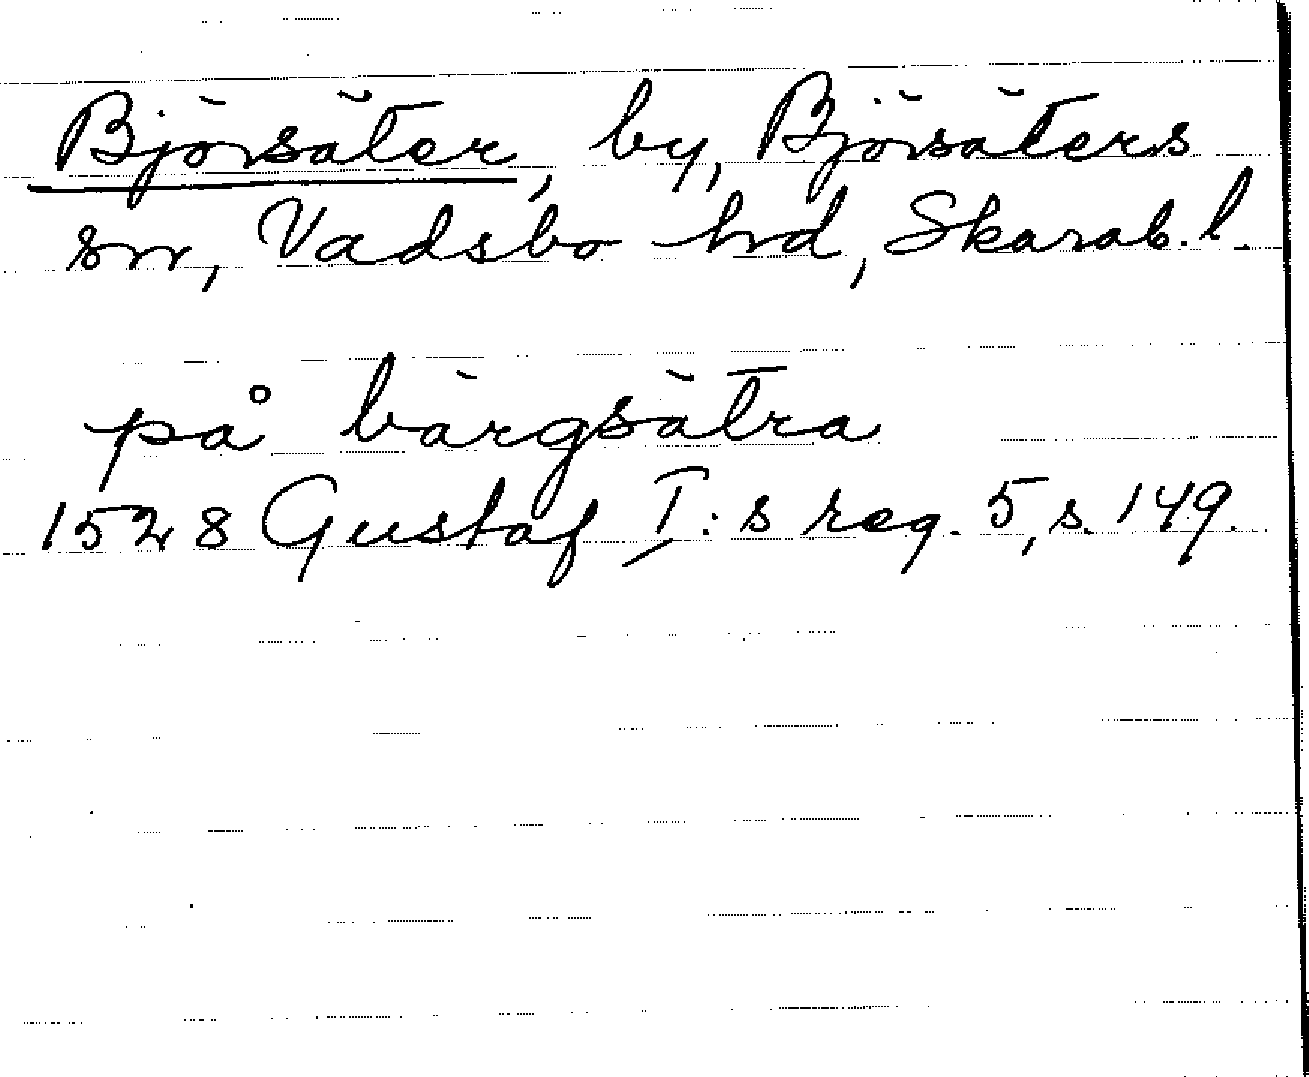 Björsäter, by, Björsäters
sn, Vadsbo hd, Skarab. l.
på bärgsätra
1528 Gustaf I:s reg. 5, s. 149.